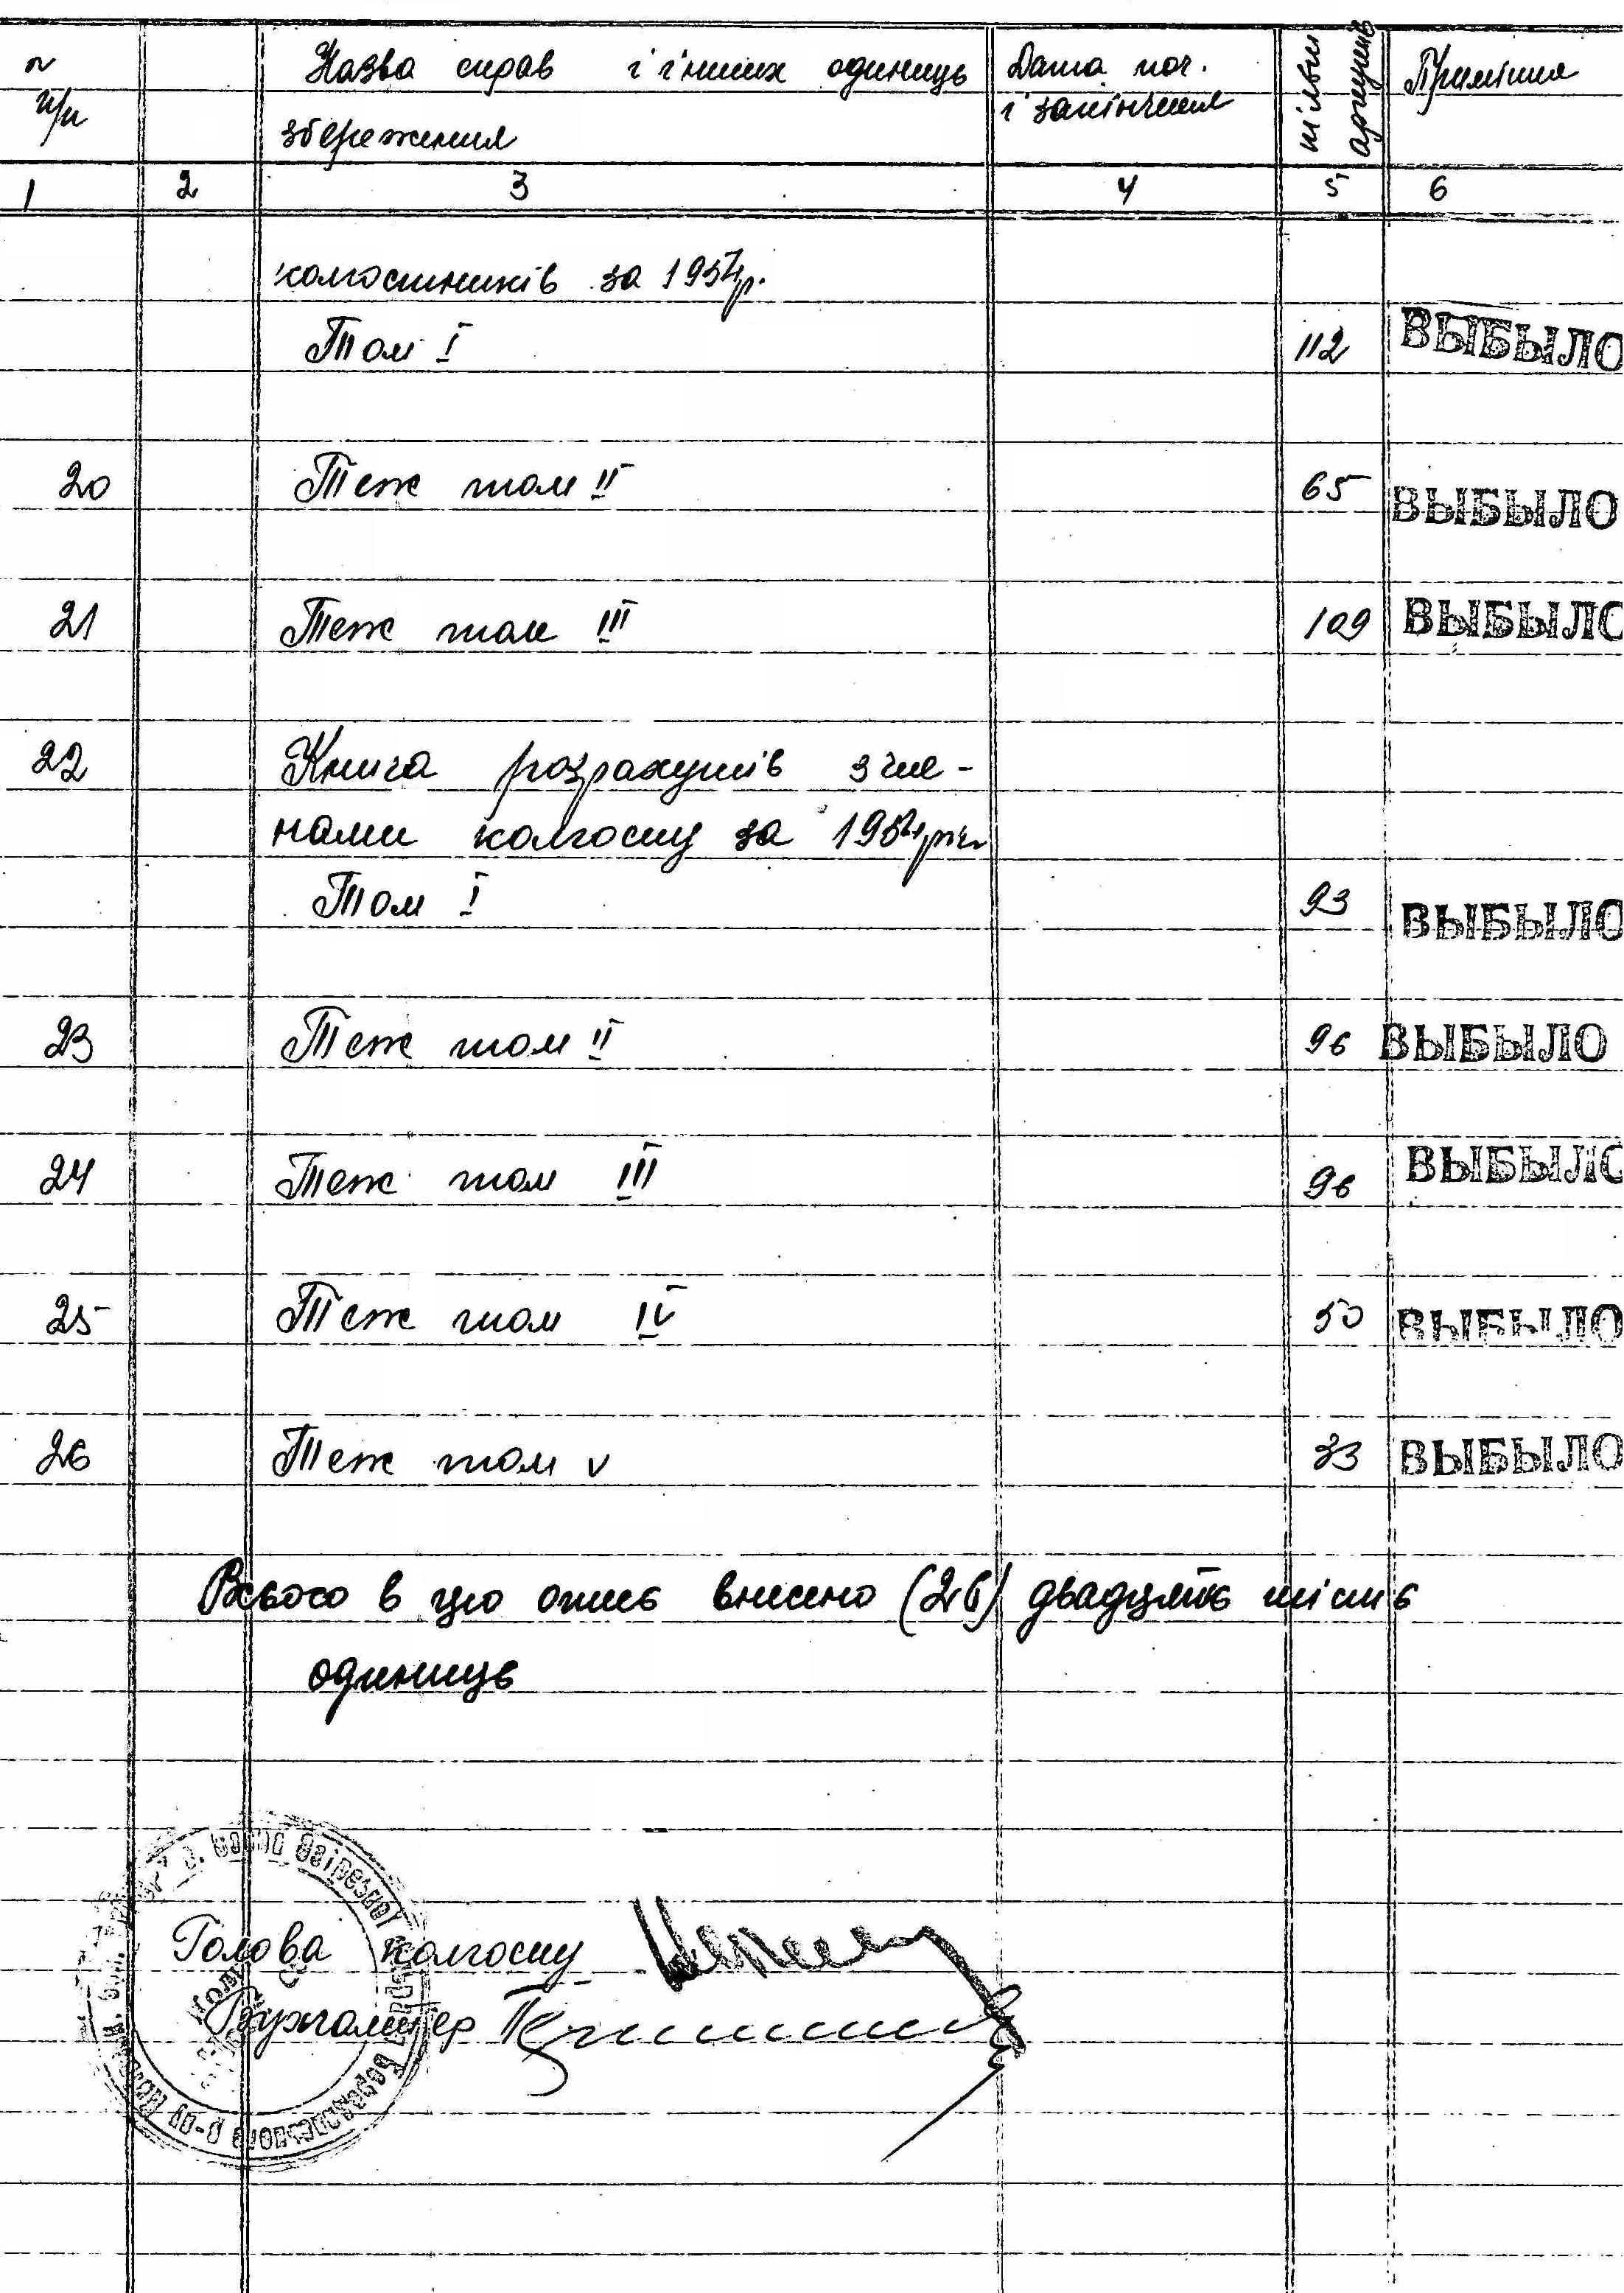 п/п Назва справ і інших одиниць збереження Дата поч. і закінчення кільк аркушів Примітка
1 2 3 4 5 6
колгоспників за 1954р.
Том I 112 ВЫБЫЛО
20 Теж том II 65 ВЫБЫЛО
21 Теж том III 109 ВЫБЫЛО
22 Книга розрахунків з чле-
нами колгоспу за 1954 рік
Том I 93 ВЫБЫЛО
23 Теж том II 96 ВЫБЫЛО
24 Теж том III 96 ВЫБЫЛО
25 Теж том IV 50 ВЫБЫЛО
26 Теж том V 33 ВЫБЫЛО
Всього в цю опись внесено (26) двадцять шість
одиниць
Голова колгоспу
Бухгалтер